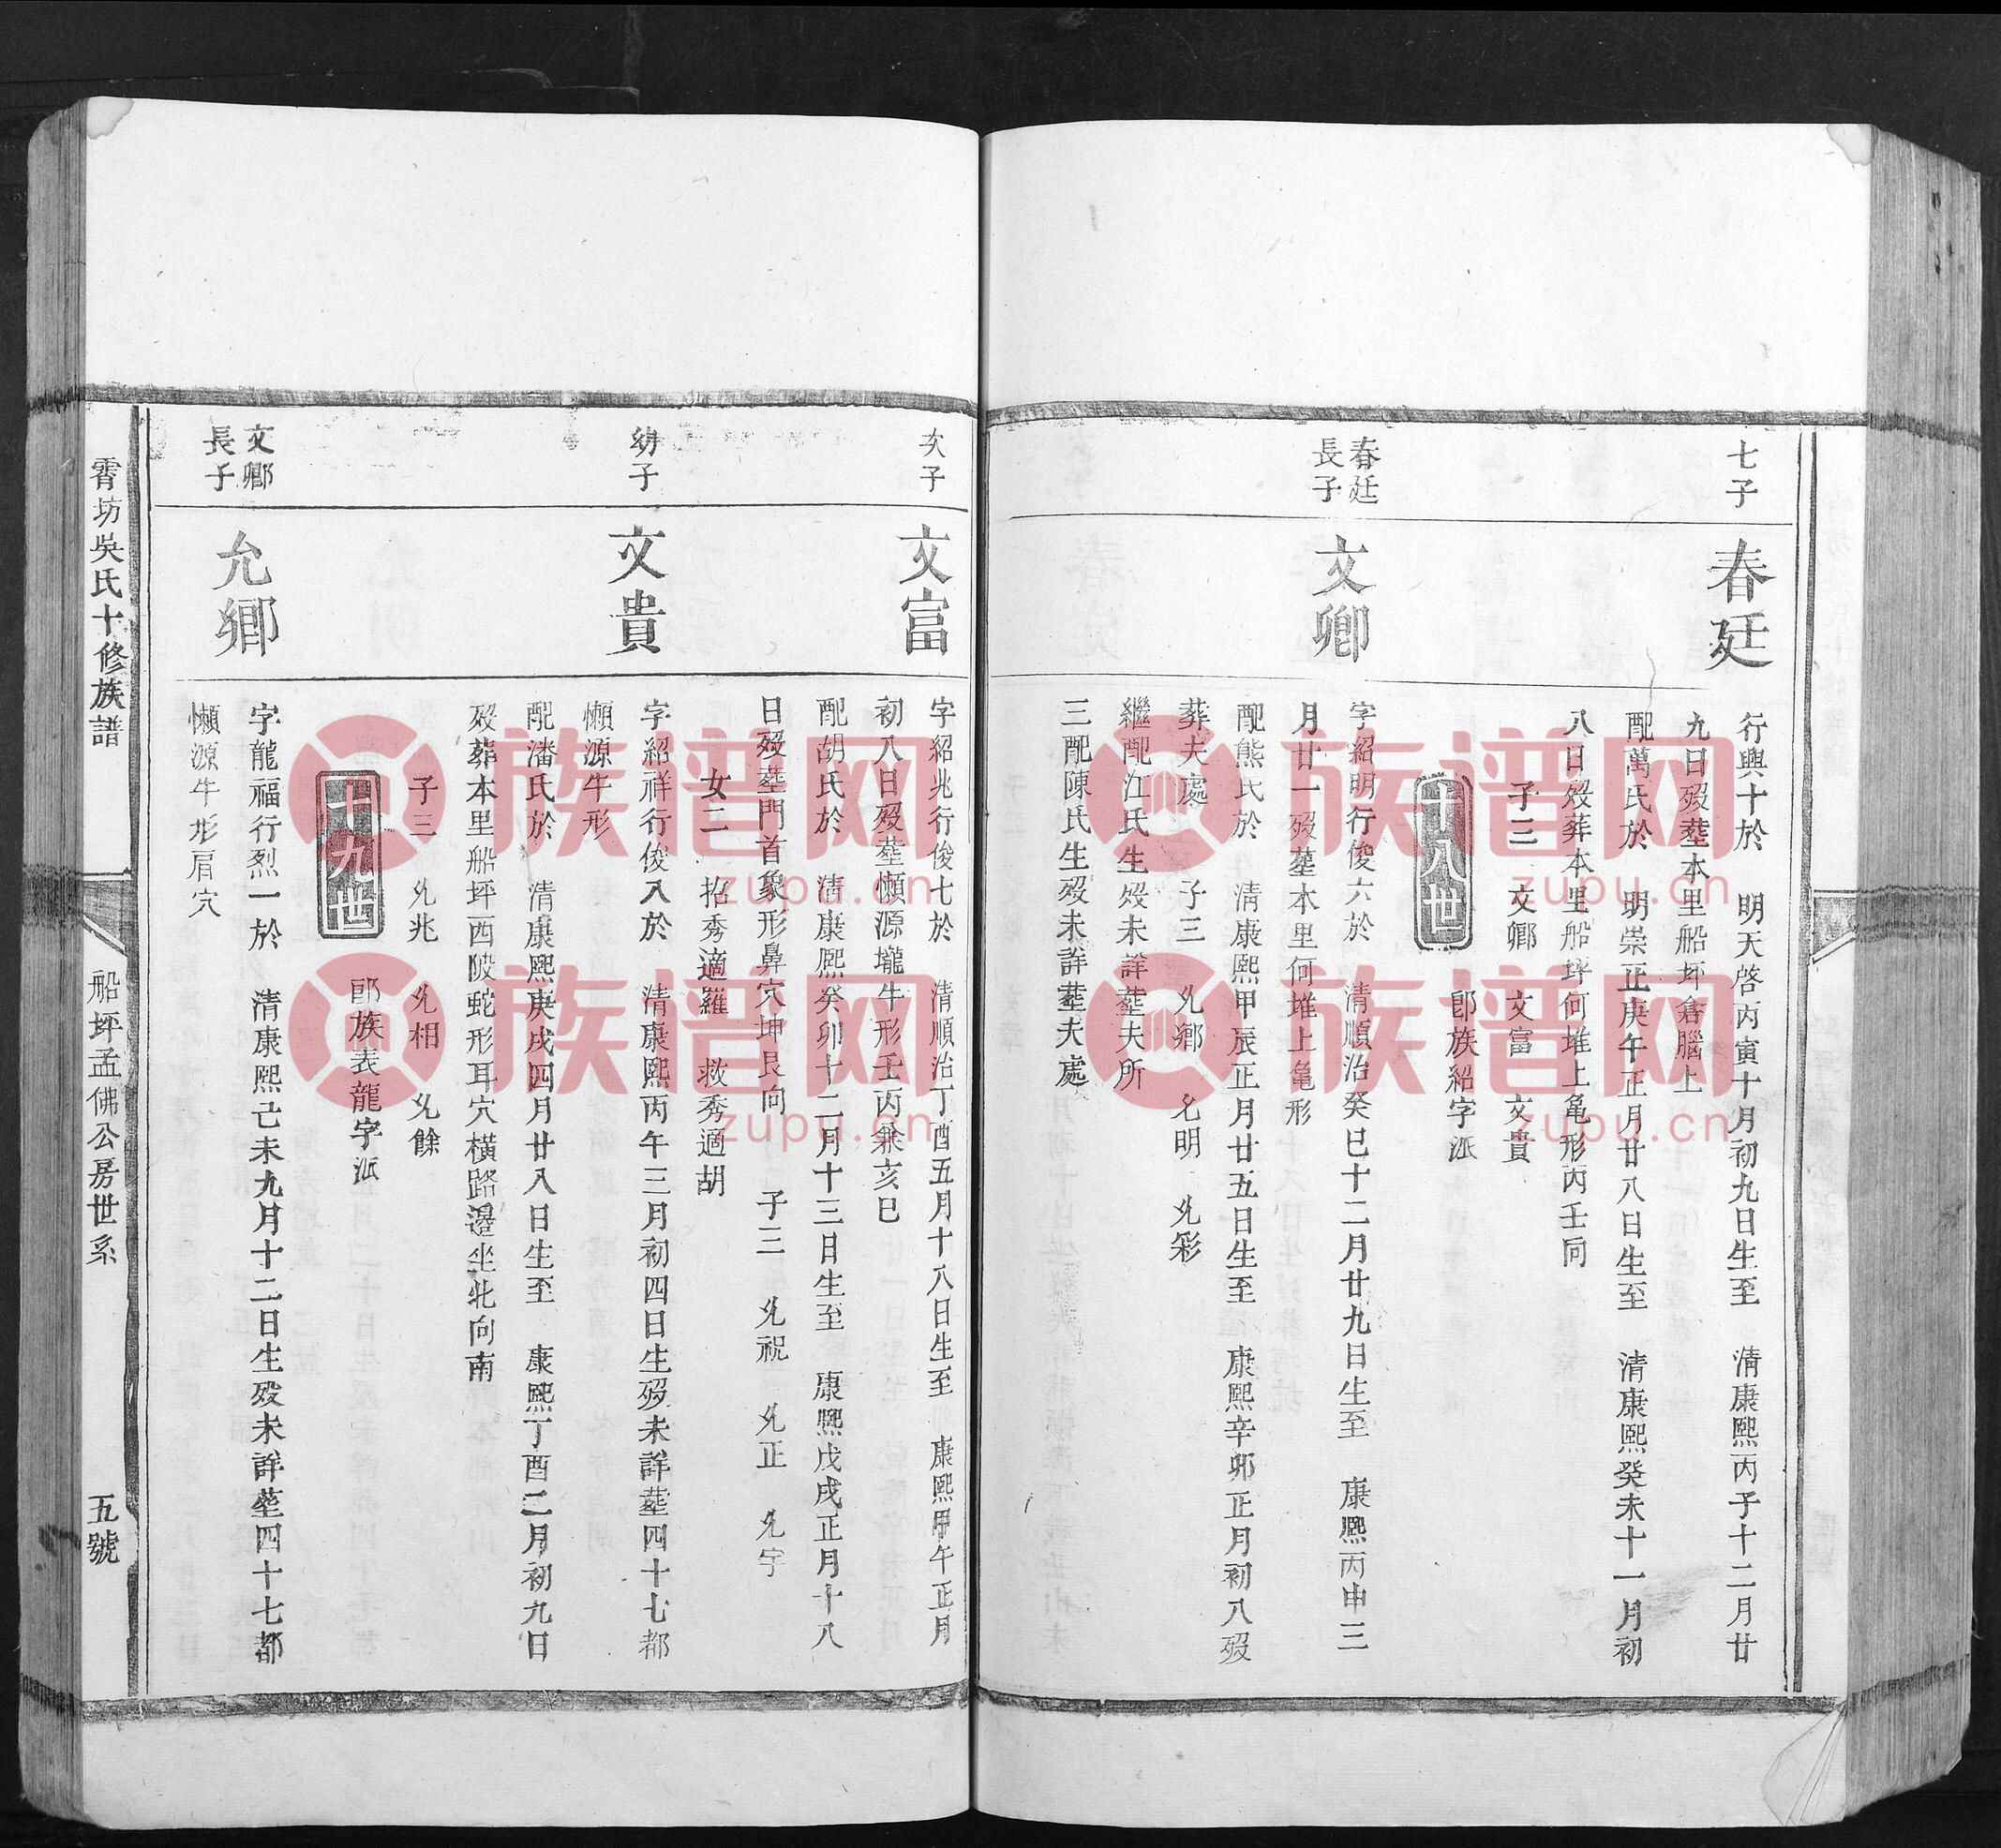 七子
春廷
行興十於 明天啓丙寅十月初九日生至 淸康熙丙子十二月廿
九日歿塟本里船坪倉腦上
配萬氏於 明崇正庚午正月廿八日生至 清康熙癸未十一月初
八日歿葬本里船坪何堆上亀形丙壬向
子三 文卿 文富 文貴
十八世
卽族紹字派
春廷
長子
文卿
字紹明行俊六於 清順治癸巳十二月廿九日生至 康熙丙申三
月廿一歿墓本里何堆上亀形
配熊氏於 淸康熙甲辰正月廿五日生至 康熙辛卯正月初八歿
葬夫處 子三 允鄉 允明 允彩
繼配江氏生歿未詳塟夫所
三配陳氏生歿未詳塟夫處
次子
文富
字紹兆行俊七於 淸順治丁酉五月十八日生至 康熙甲午正月
初八日歿塟懶源壠牛形壬丙兼亥巳
配胡氏於 淸康熙癸卯十二月十三日生至 康熙戊戌正月十八
日歿塟門首象形鼻穴坤艮向 子三 允祝 允正 允宇
女二 招秀適羅 救秀適胡
幼子
文貴
字紹祥行俊八於 淸康熙丙午三月初四日生歿未詳塟四十七都
懶源牛形
配潘氏於 清康熙庚戌四月廿八日生至 康熙丁酉二月初九日
歿葬本里船坪西陂蛇形耳穴橫路邊坐北向南
子三 允兆 允相 允餘
十九世
卽族表龍字派
文卿
長子
允鄉
字龍福行烈一於 清康熙己未九月十二日生歿未詳塟四十七都
懶源牛形肩穴
霄坊吳氏十修族譜
船坪孟佛公房世系
五號
族谱网
zupu.cn
族谱网
zupu.cn
族谱网
zupu.cn
族谱网
zupu.cn